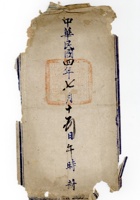 中華民國四年七月十五日午時封